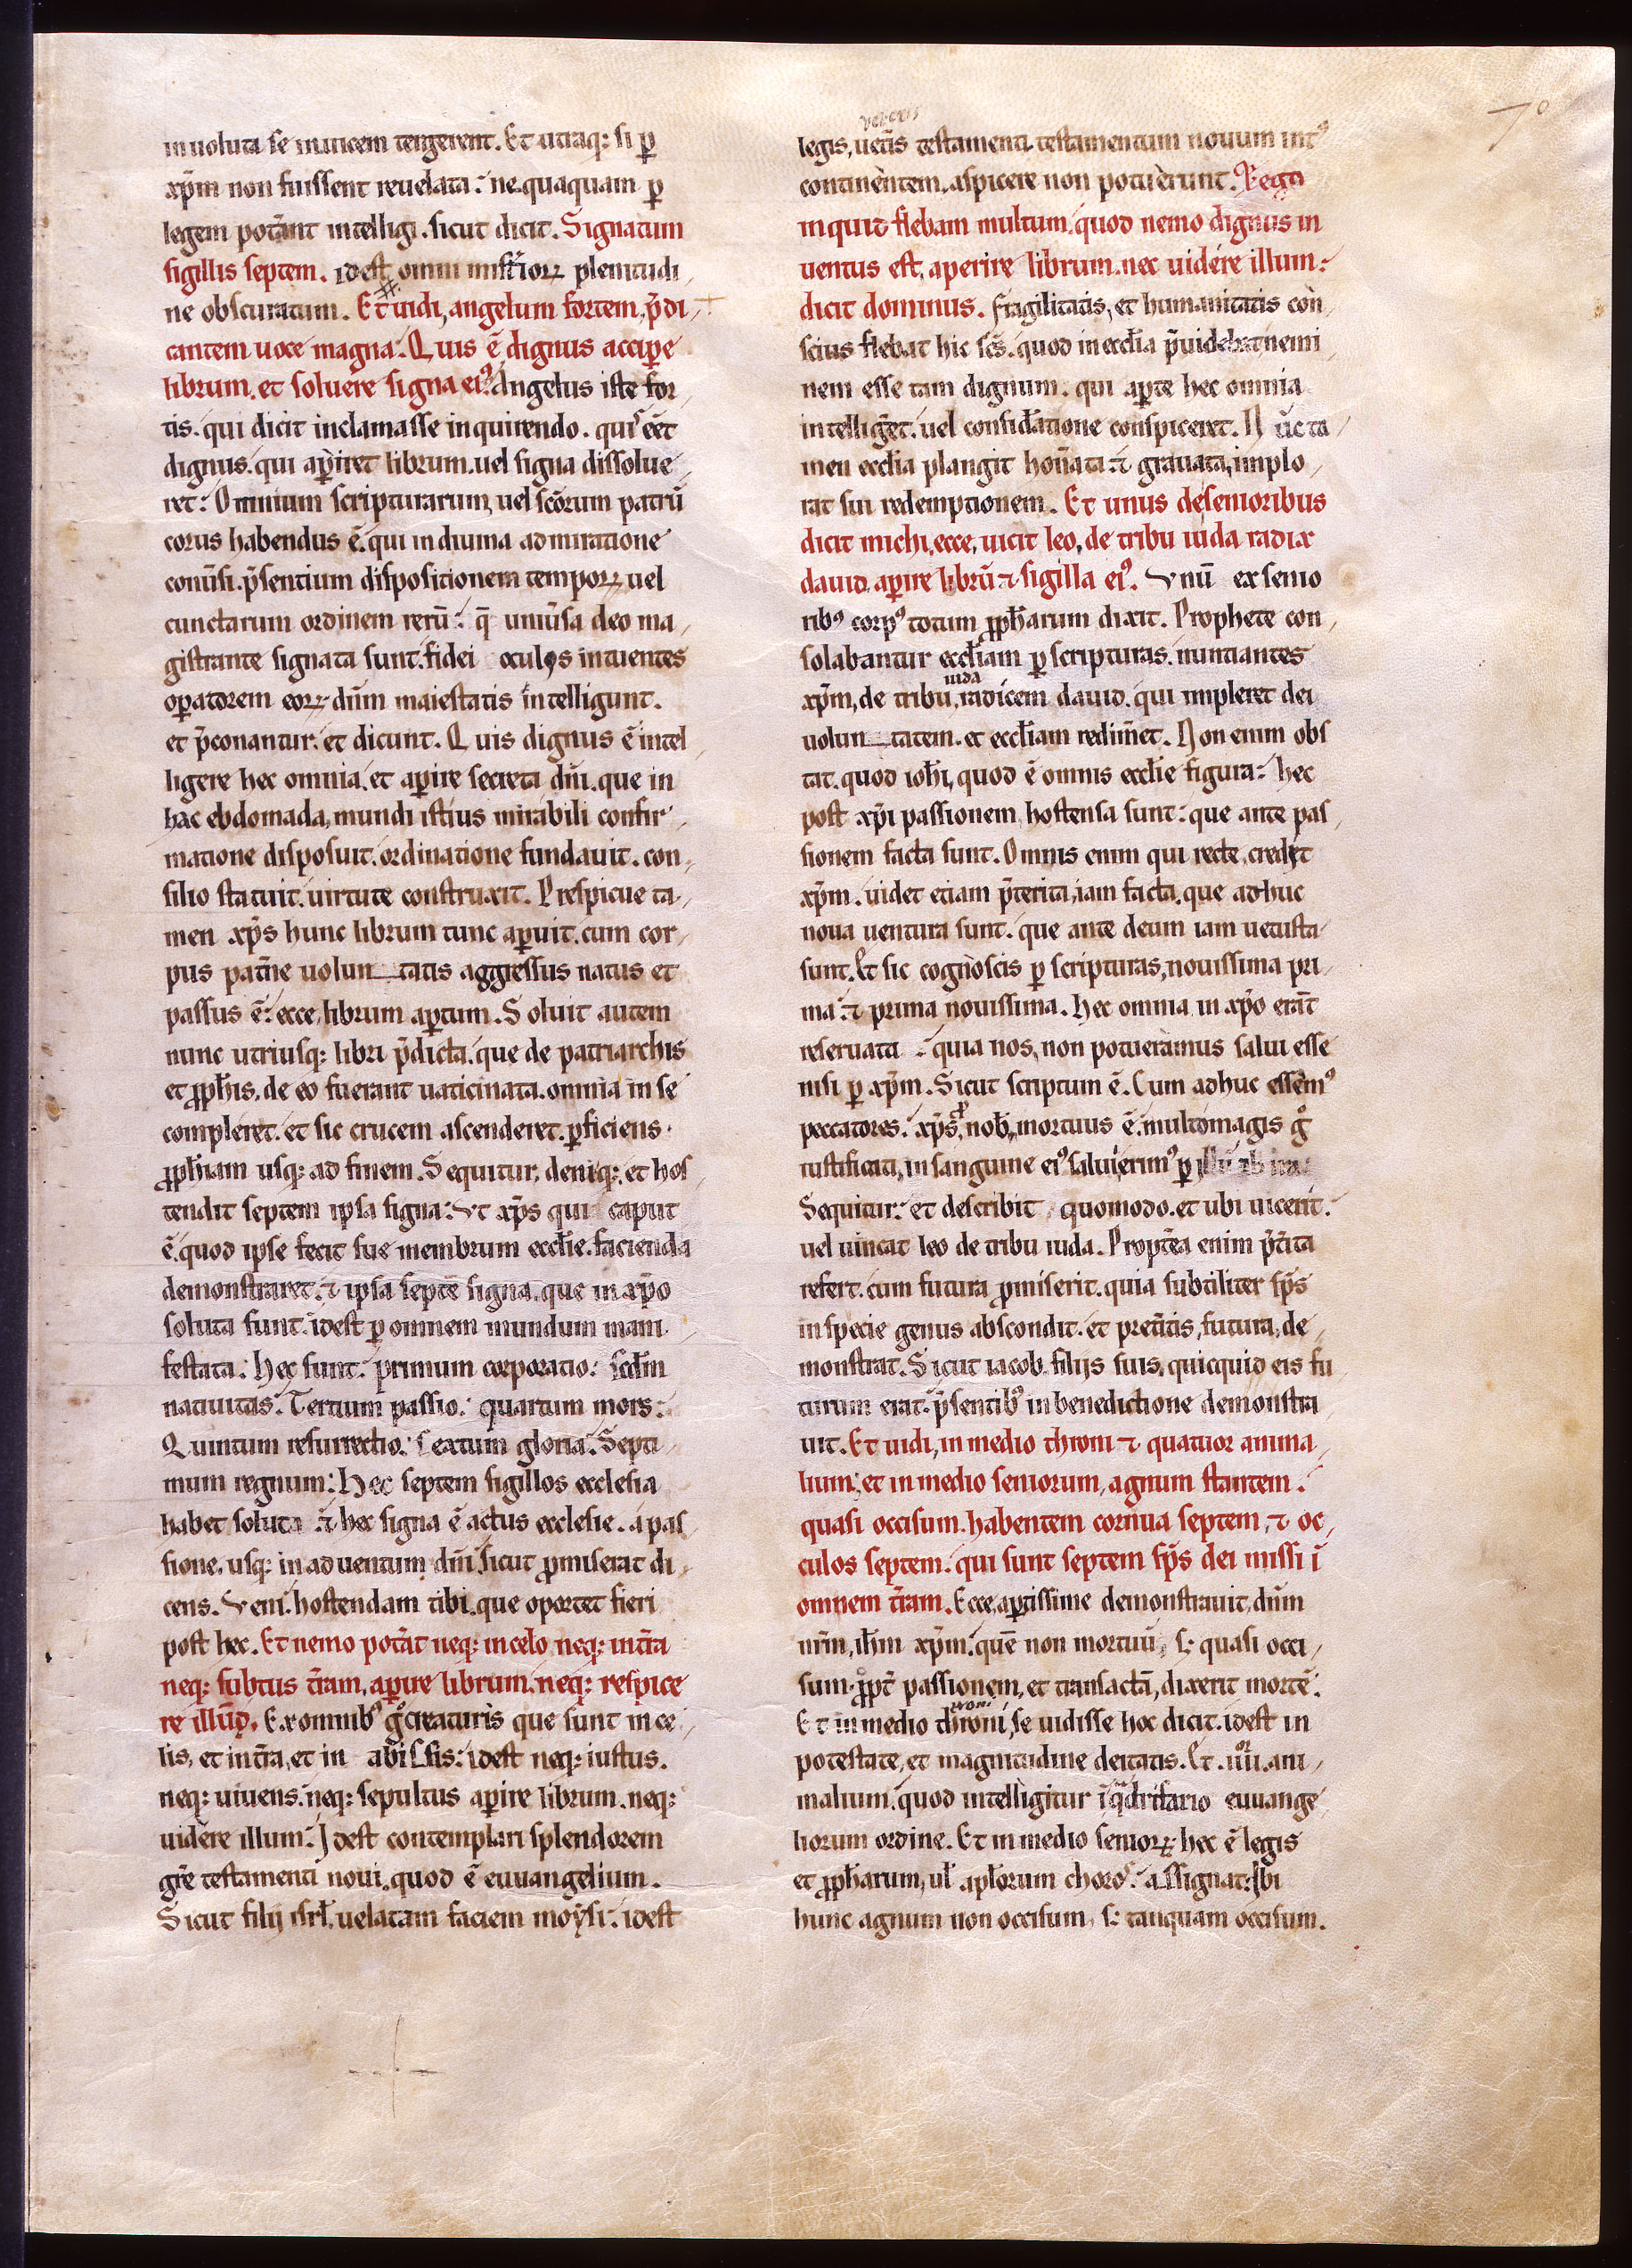 inuoluta se inuicem tengerent. Et utraq; si ꝑ
xp̄m non fuissent reuelata: nequaquam ꝑ
legem potant̄ intelligi. sicut dicit. Signatum
sigillis septem. idest, omni mist̄iorꝝ plenitudi
ne obscuratum. Et uidi, angelum fortem, p̄di
cantem uoce magna. Quis ē dignus acciꝑe
librum, et soluere signa eiꝰ. Angelus iste for
tis. qui dicit inclamasse inquirendo. qui eēt
dignus. qui aꝑiret librum. uel signa dissolue
ret: Omnium scripturarum, uel scōrum patrū
corus habendus ē. qui in diuina admiratione
conūsi. p̄sentium dispositionem temporꝝ uel
cunctarum ordinem rerū: q̄ uniūsa deo ma
gistrante signata sunt. fidei oculos intuentes
oꝑatorem eorꝝ dūm maiestatis intelligunt.
et p̄conantur. et dicunt. Quis dignus ē intel
ligere hec omnia, et aꝑire secreta dn̄i. que in
hac ebdomada, mundi istius mirabili confir
matione disposuit. ordinatione fundauit. con
silio statuit. uirtute construxit. Prespicue ta
men xp̄s hunc librum tunc aꝑuit. cum cor
pus pat̄ne uoluntatis aggressus natus et
passus ē: ecce, librum aꝑtum. Soluit autem
nunc utriusq; libri p̄dicta. que de patriarchis
et ꝓph̄is, de eo fuerant uaticinata. omnia in se
compleret. et sic crucem ascenderet. ꝑficiens
ꝓph̄iam usq; ad finem. Sequitur, deniq; et hos
tendit septem ipsa signa. Vt xp̄s qui caput
ē. quod ipse fecit sue membrum eccl̄ie. facienda
demonstraret. ⁊ ipsa septē signa. que in xp̄o
soluta sunt. idest ꝑ omnem mundum mani
festata. Hec sunt. primum corporatio. scd̄m
natiuitas. Tertium passio. quartum mors.
Quintum resurrectio. Sextum gloria. Septi
mum regnum: Hec septem sigillos ecclesia
habet soluta ⁊ hec signa ē actus ecclesie. a pas
sione, usq; in aduentum dn̄i. sicut ꝓmiserat di
cens. Veni. hostendam tibi. que oportet fieri
post hec. Et nemo pot̄at neq; in celo neq; in t̄ra
neq; subtus t̄ram, aꝑire librum. neq; respice
re illud. Ex omnibꝰ gͦ creaturis que sunt in ce
lis, et in t̄ra, et in abissis: idest neq; iustus.
neq; uiuens. neq; sepultus aꝑire librum. neq;
uidere illum: Idest contemplari splendorem
gr̄e testamenti noui. quod ē euuangelium.
Sicut filij isrl̄, uelatam faciem moẏsi. idest
ueteris
legis, uet̄is testamenti. testamentum nouum intꝰ
continentem, aspicere non potuerunt. Et ego
inquit flebam multum, quod nemo dignus in
uentus est, aperire librum. nec uidere illum:
dicit dominus. fragilitatis, et humanitatis con
scius flebat hic scs̄. quod in eccl̄ia p̄uidebat nemi
nem esse tam dignum. qui aꝑte hec omnia
intelliḡet. uel consid̄atione conspiceret. Nūc ta
men eccl̄ia plangit hon̄ata ⁊ grauata, implo
rat sui redemptionem. Et unus de senioribus
dicit michi, ecce, uicit leo, de tribu iuda radix
dauid. aꝑire librū ⁊ sigilla eiꝰ. Vnū ex senio
ribꝰ corpꝰ totum ꝓph̄arum dixit. Prophete con
solabantur eccl̄iam ꝑ scripturas. nuntiantes
iuda
xp̄m, de tribu, radicem dauid. qui impleret dei
uoluntatem. et eccl̄iam redim̄et. Non enim obs
tat. quod ioh̄i, quod ē omnis eccl̄ie figura: hec
post xp̄i passionem, hostensa sunt: que ante pas
sionem facta sunt. Omnis enim qui recte, credit
xp̄m. uidet etiam p̄terita, iam facta. que adhuc
noua uentura sunt. que ante deum iam uetusta
sunt. Et sic cognoscis ꝑ scripturas, nouissima pri
ma. ⁊ prima nouissima. Hec omnia in xp̄o erāt
reseruata: quia nos, non potueramus salui esse
nisi ꝑ xp̄m. Sicut scriptum ē. Cum adhuc essemꝰ
peccatores. xp̄s, ꝓ nob̄, mortuus ē. multomagis gͦ
iustificati, in sanguine eiꝰ saluierimꝰ ꝑ
Sequitur: et describit quomodo. et ubi uicerit.
uel uincat leo de tribu iuda. Propt̄ea enim p̄t̄ita
refert. cum futura ꝓmiserit. quia subtiliter sp̄s
in specie genus abscondit. et pret̄itis, futura, de
monstrat. Sicut iacob, filijs suis, quicquid eis fu
turum erat. p̄sentibꝰ in benedictione demonstra
uit. Et uidi, in medio throni ⁊ quatuor anima
lium: et in medio seniorum, agnum stantem.
quasi occisum. habentem cornua septem, ⁊ oc
culos septem. qui sunt septem sp̄s dei missi ī
omnem t̄ram. Ecce, aꝑtissime demonstrauit, dūm
nr̄m, ih̄m xp̄m. quē non mortuū, s; quasi occi
sum. ꝓpt̄ passionem, et transactā, dixerit mortē.
troni
Et in medio throni, se uidisse hoc dicit. idest in
potestate, et magnitudine deitatis. Et .iiiior. ani
malium. quod intelligitur ī qͣdrifario euuange
liorum ordine. Et in medio seniorꝝ. hec ē legis
et ꝓph̄arum, ul̄ apl̄orum chorꝰ. assignat. ibi
hunc agnum non occisum, s; tanquam occisum.